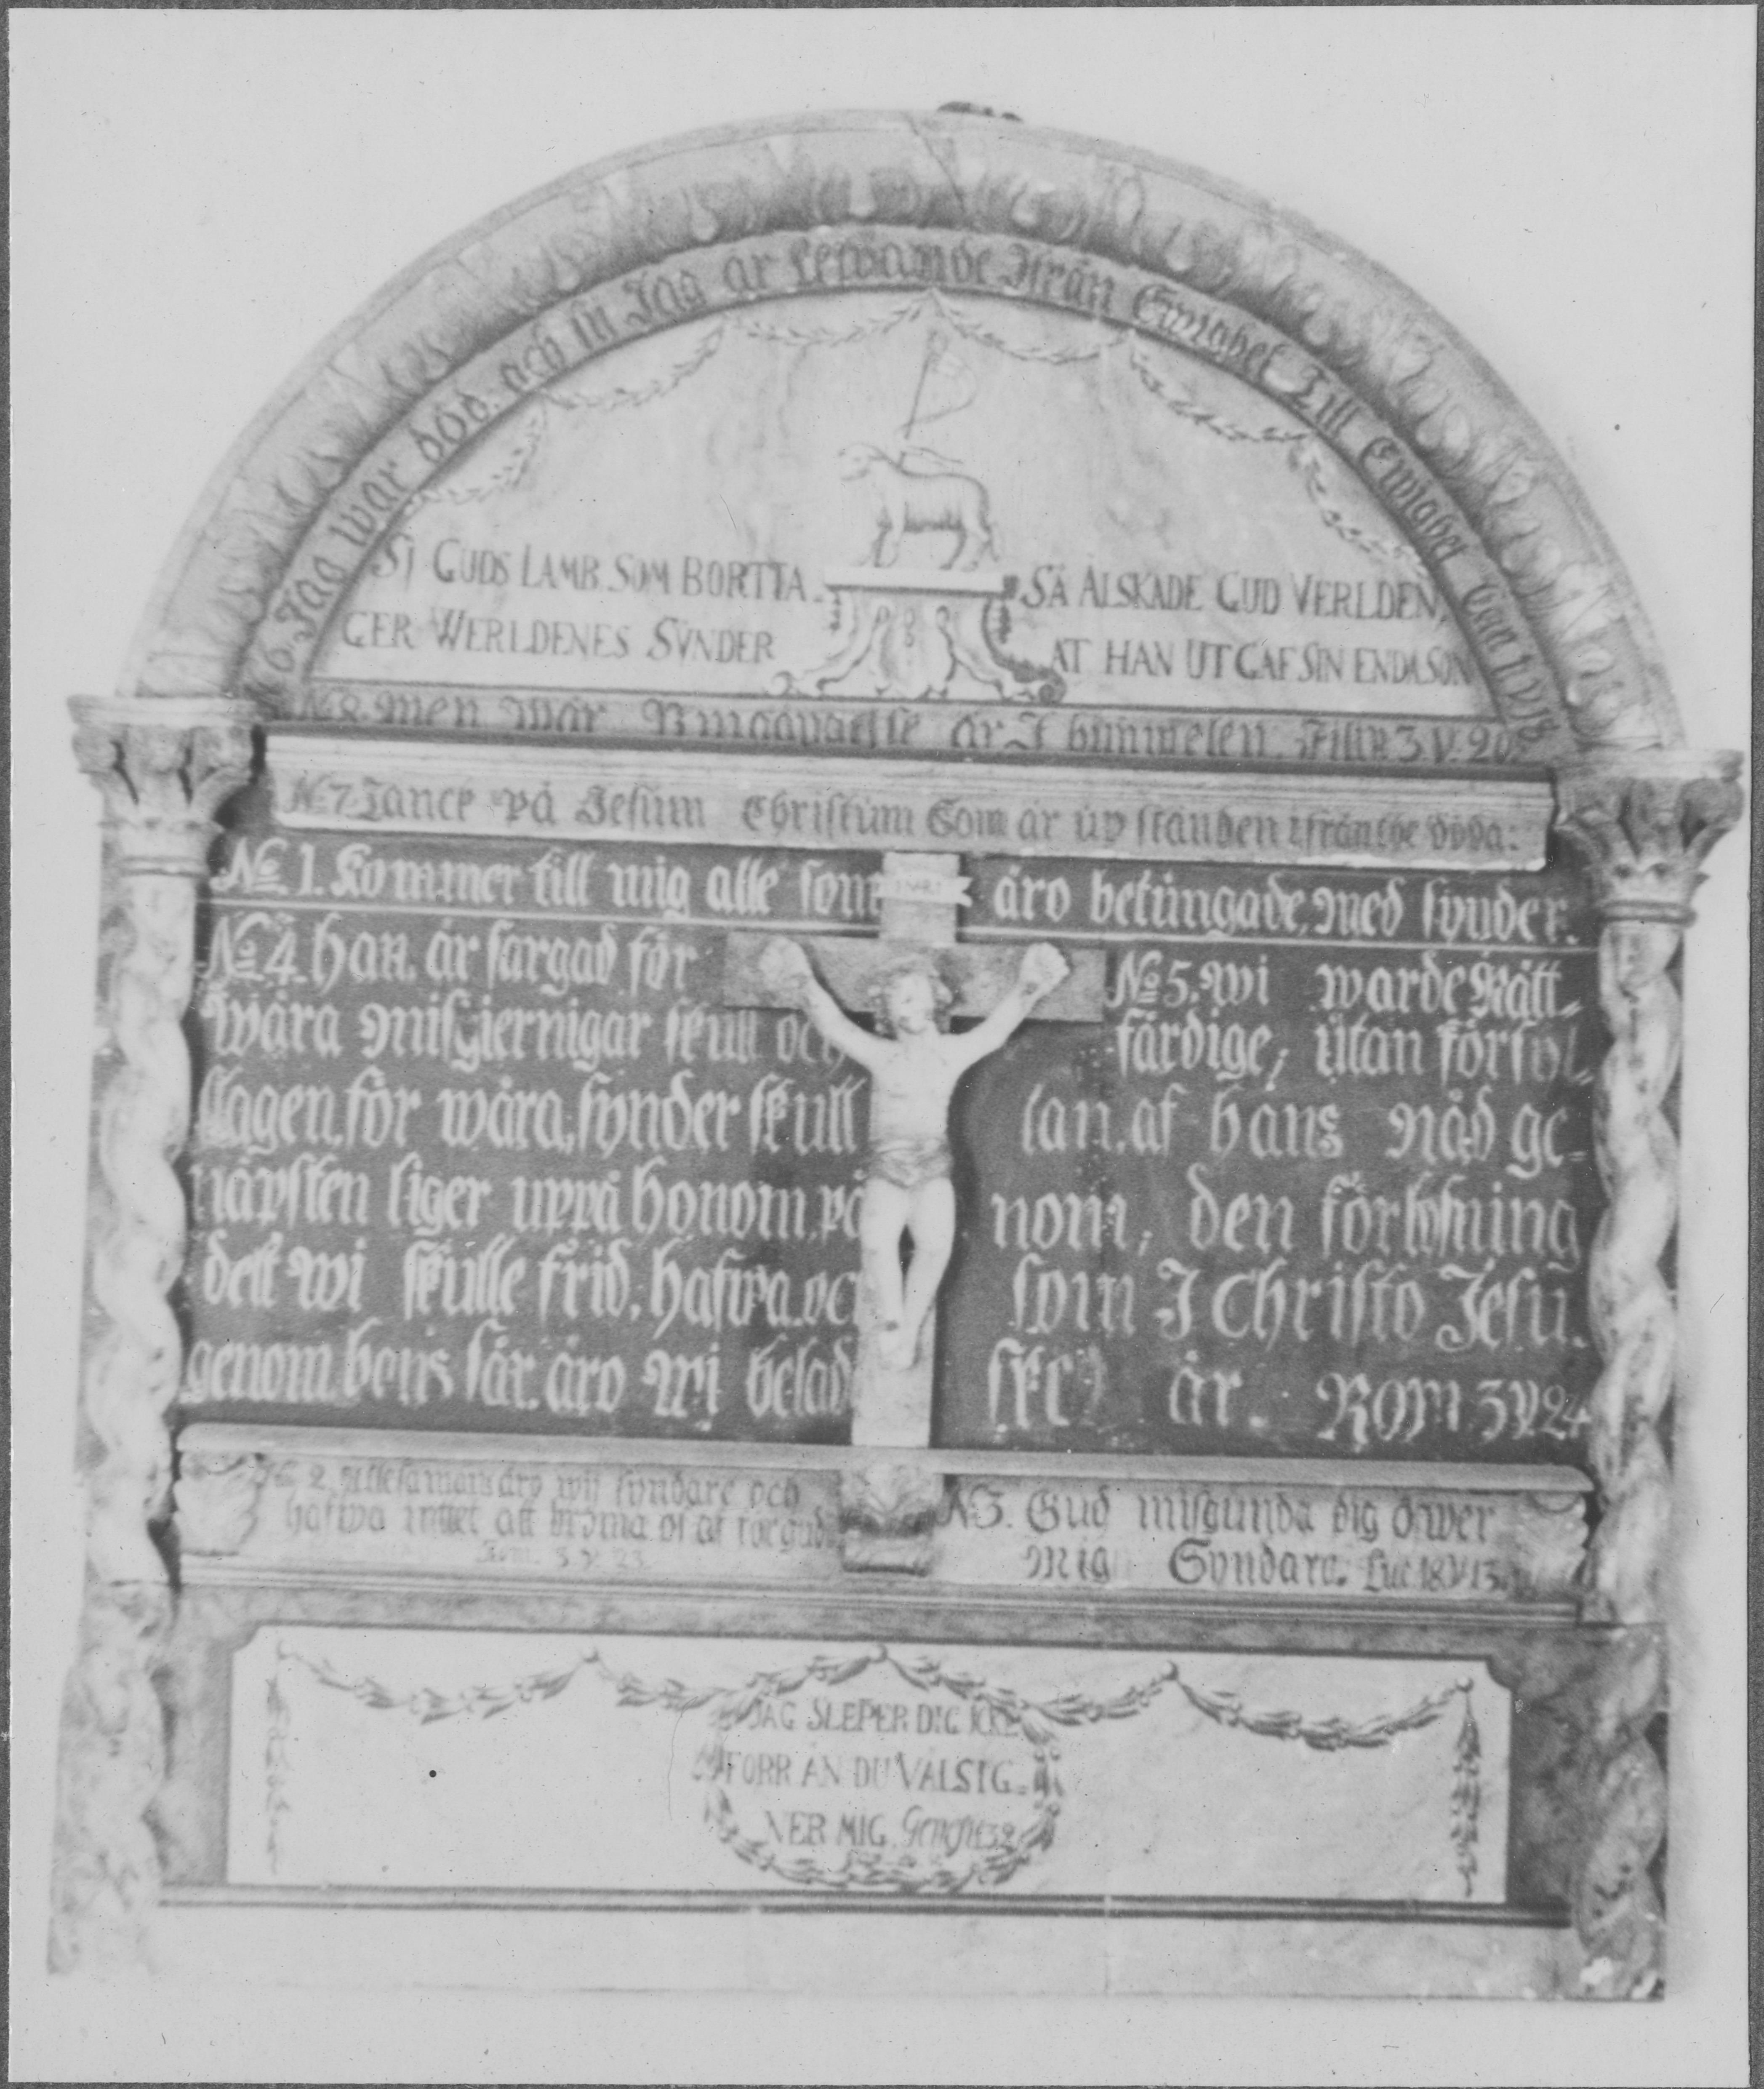 N 6. Jag war död, och si Jag är Lefwande Ifrån Ewighet Till Ewighet
SI GUDS LAMB SOM BORTTA-
GER WERLDENES SYNDER
SÅ ÄLSKADE GUD VERLDEN,
AT HAN UTGAF SIN ENDA SON
No 8 men wår är I himmelen. Filip 3 V. 20
No 7 Tänck på Jesum Christum Som är up ständen ifrån the döda:
No 1. Kommer till mig alle som äro betüngade, med synder.
No 4. han. är sargad för
wåra misgierningar skull och
slagen, för wåra, synder skull
näpsten liger uppå honom, på
dett wi skulle frid, hafwa. och
genom hans sår. äro wi helad
No 5. wi warde Rätt-
färdige, ütan förskyl-
lan. af hans nåd ge-
nom, den förlosning
som I Christo Jesu.
sked är. ROM 3 V 24
No 2. Allesamans äro wij syndare och
hafwa intet att
Rom. 3 V. 23.
N 3. Gud misgunda dig ówer
Mig Syndare. Luc 18 V 13.
INRI
JAG SLEPER DIG ICKE
FORR ÄN DU VÄLSIG-
NER MIG. Genes: 32